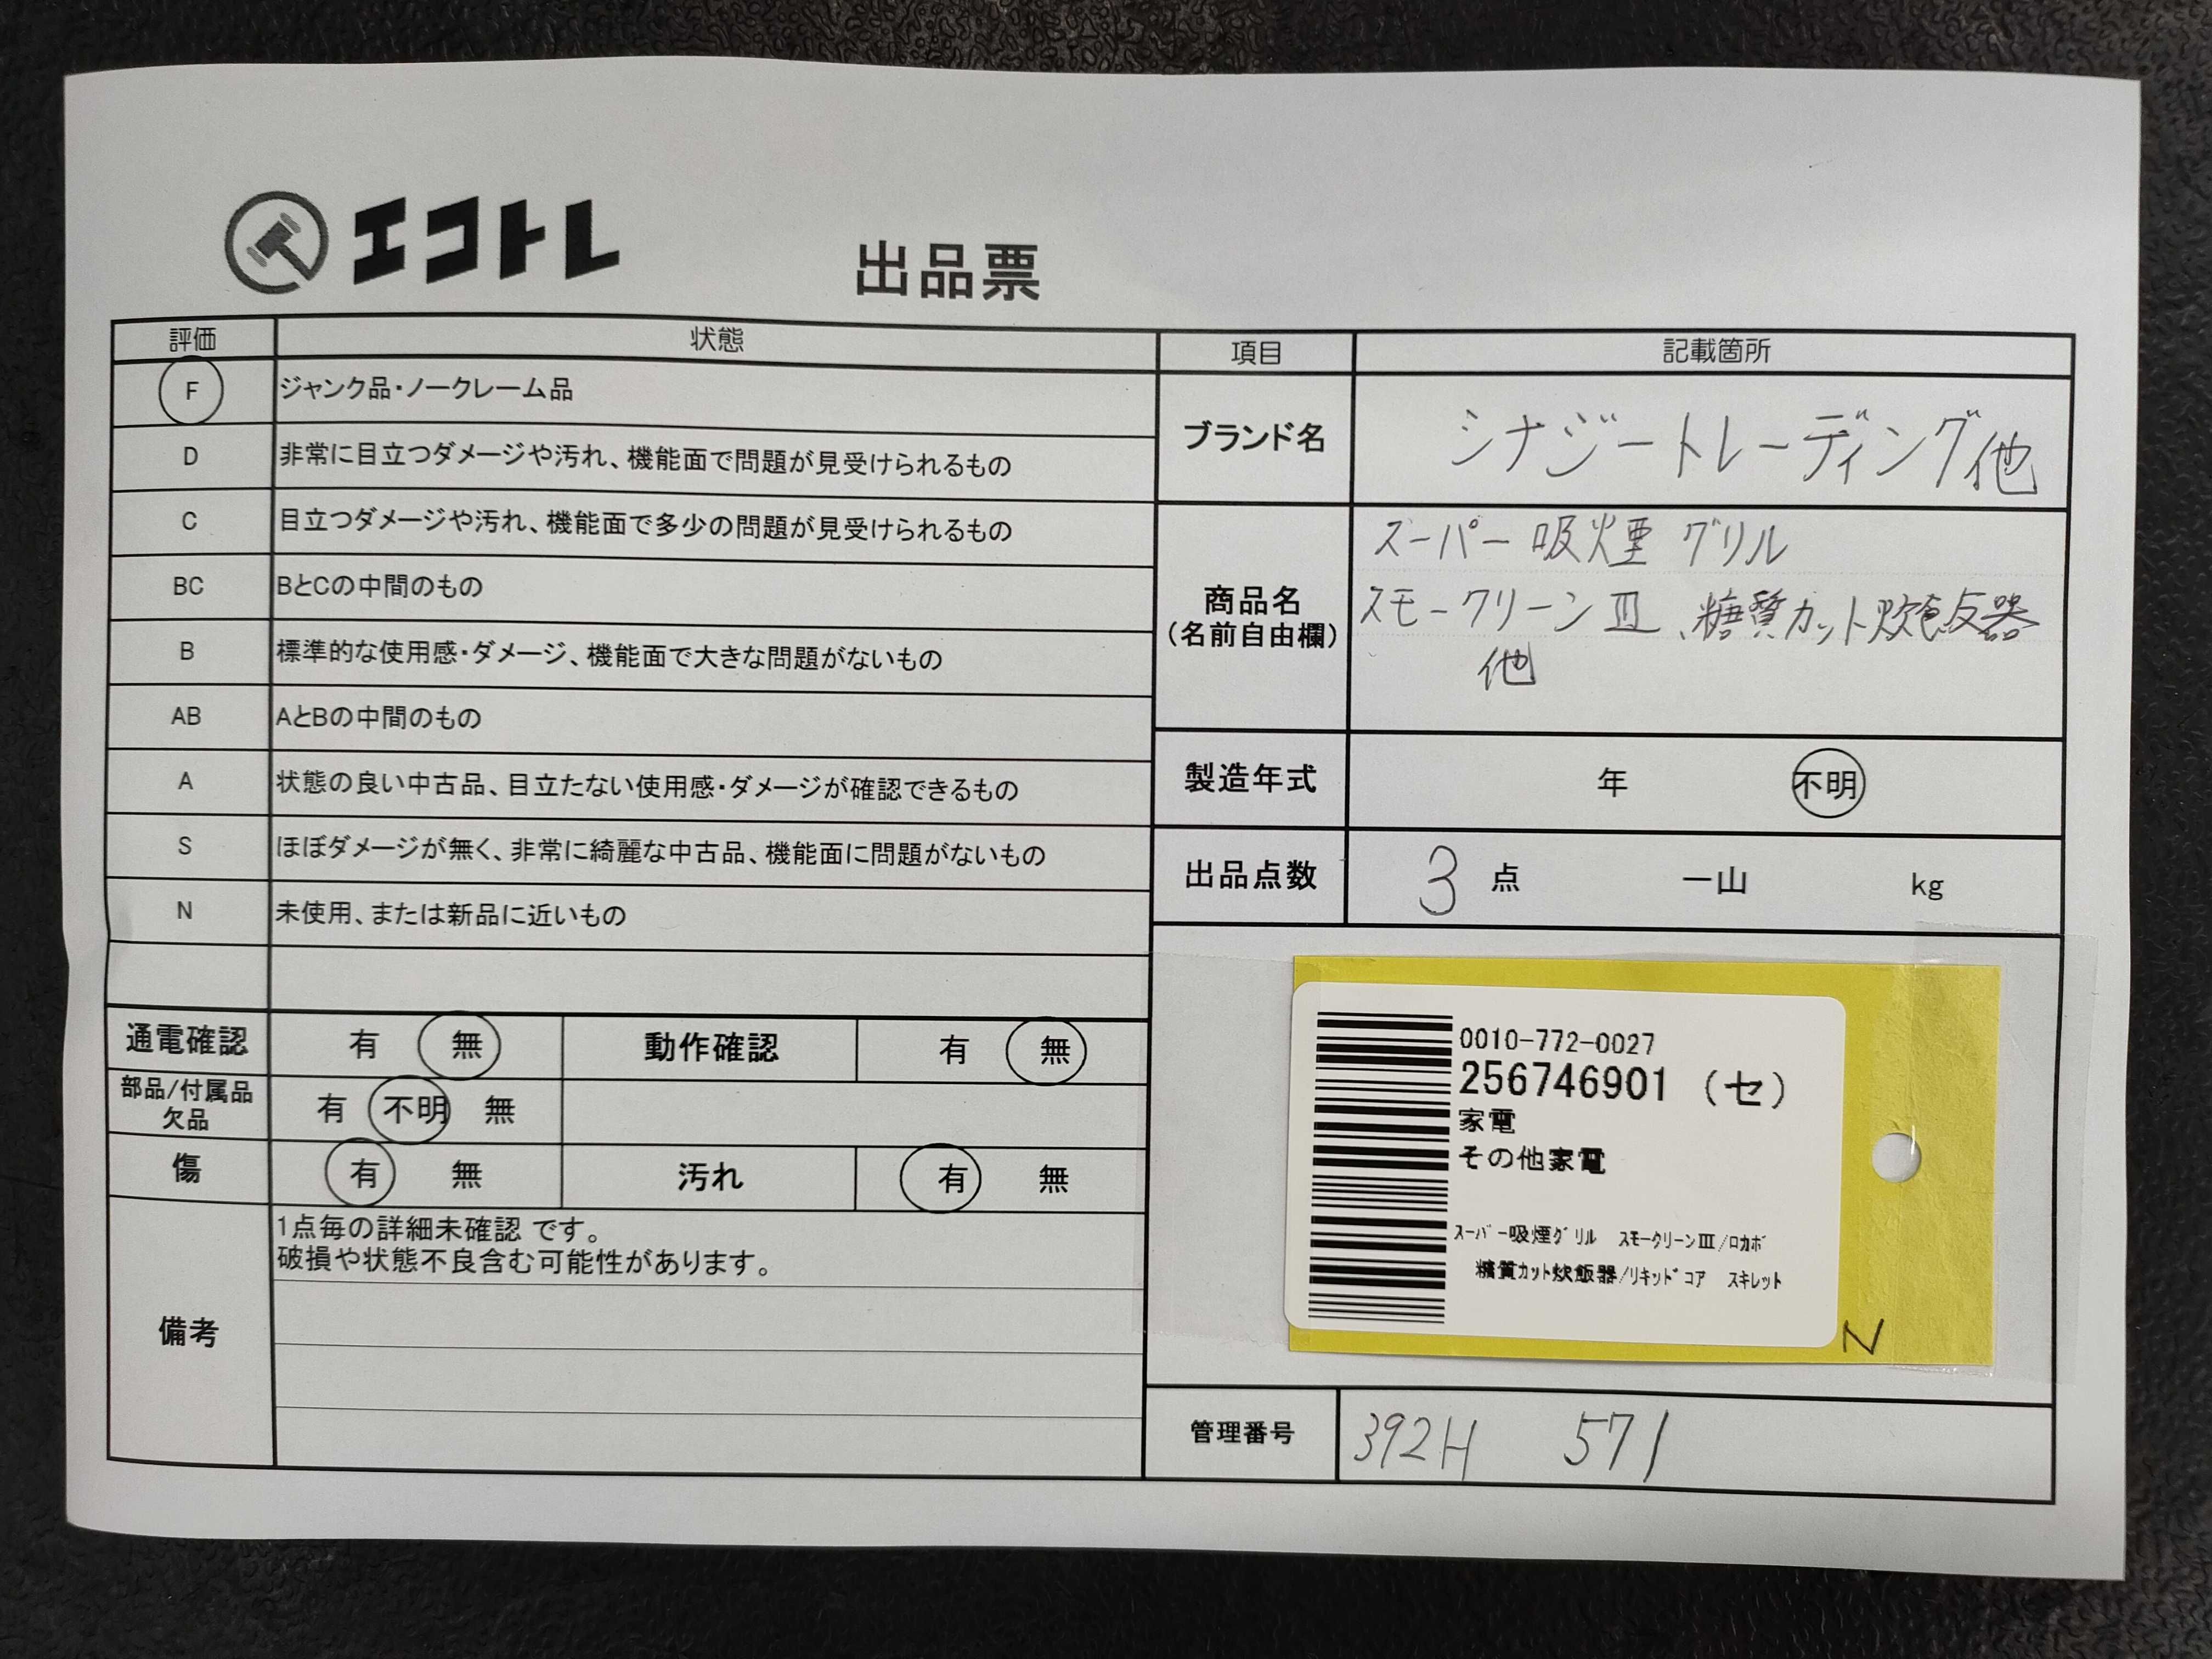 エコトレ
出品票
評価 状態
F ジャンク品・ノークレーム品
D 非常に目立つダメージや汚れ、機能面で問題が見受けられるもの
C 目立つダメージや汚れ、機能面で多少の問題が見受けられるもの
BC BとCの中間のもの
B 標準的な使用感・ダメージ、機能面で大きな問題がないもの
AB AとBの中間のもの
A 状態の良い中古品、目立たない使用感・ダメージが確認できるもの
S ほぼダメージが無く、非常に綺麗な中古品、機能面に問題がないもの
N 未使用、または新品に近いもの
通電確認 有 無 動作確認 有 無
部品/付属品
欠品 有 不明 無
傷 有 無 汚れ 有 無
備考
1点毎の詳細未確認 です。
破損や状態不良含む可能性があります。
項目 記載箇所
ブランド名 シナジートレーディング他
商品名
(名前自由欄)
スーパー吸煙グリル
スモークリーンⅢ、糖質カット炊飯器
他
製造年式 年 不明
出品点数 3 点 一山 kg
0010-772-0027
256746901 (セ)
家電
その他家電
スーパー吸煙グリル スモークリーンⅢ/ロカボ
糖質カット炊飯器/リキッドコア スキレット
N
管理番号 392H 571